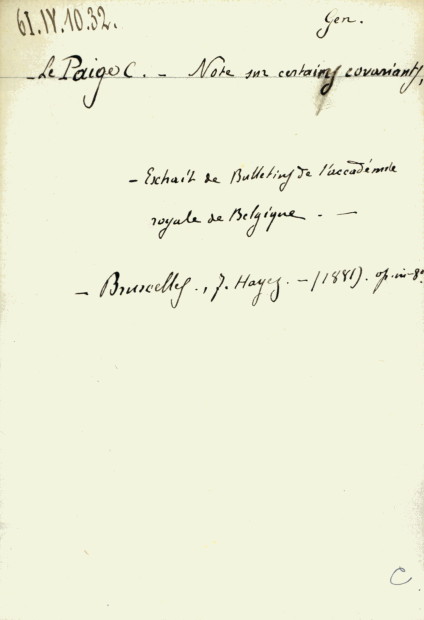 61.IV.10.32.
Gen.
- Le Paige C. - Note sur certains covariants,
- Exhait de Bulletins de l'accadémie
royale de Belgique. -
- Bruxelles., J. Hayez. - (1881). op. in-8º
C